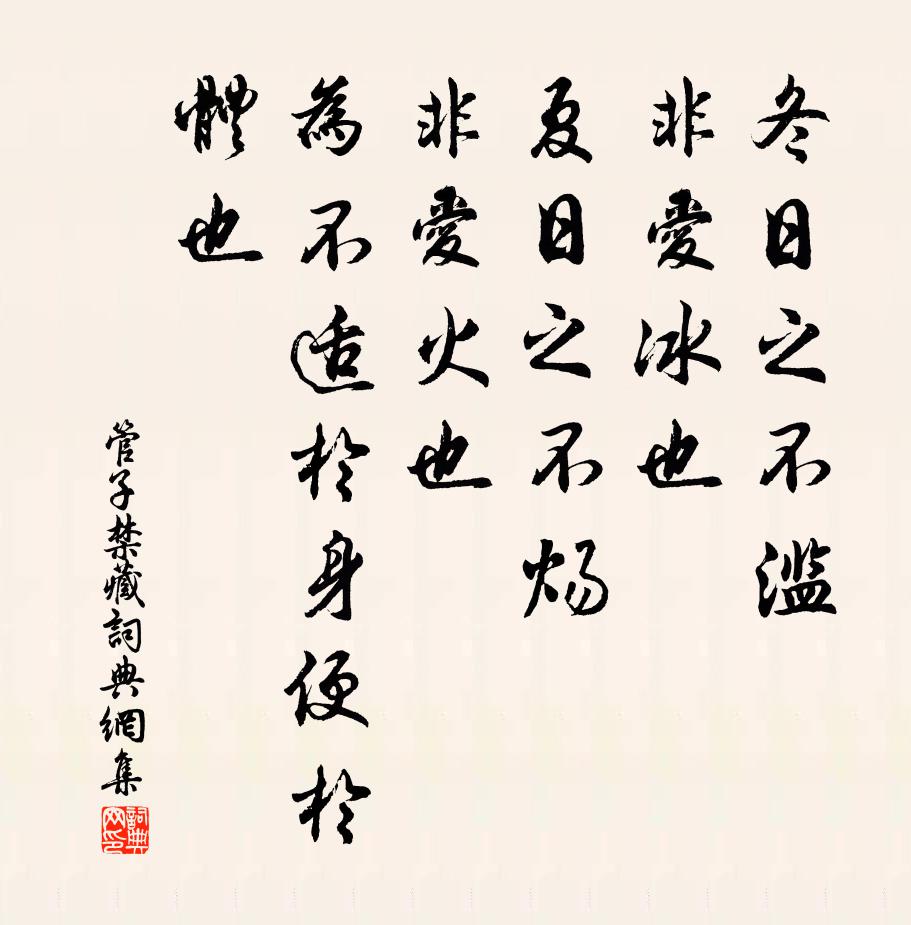 冬日之不濫
非愛冰也
夏日之不煬
非愛火也
為不适於身便於
體也
管子禁藏詞典網集
詞典網印